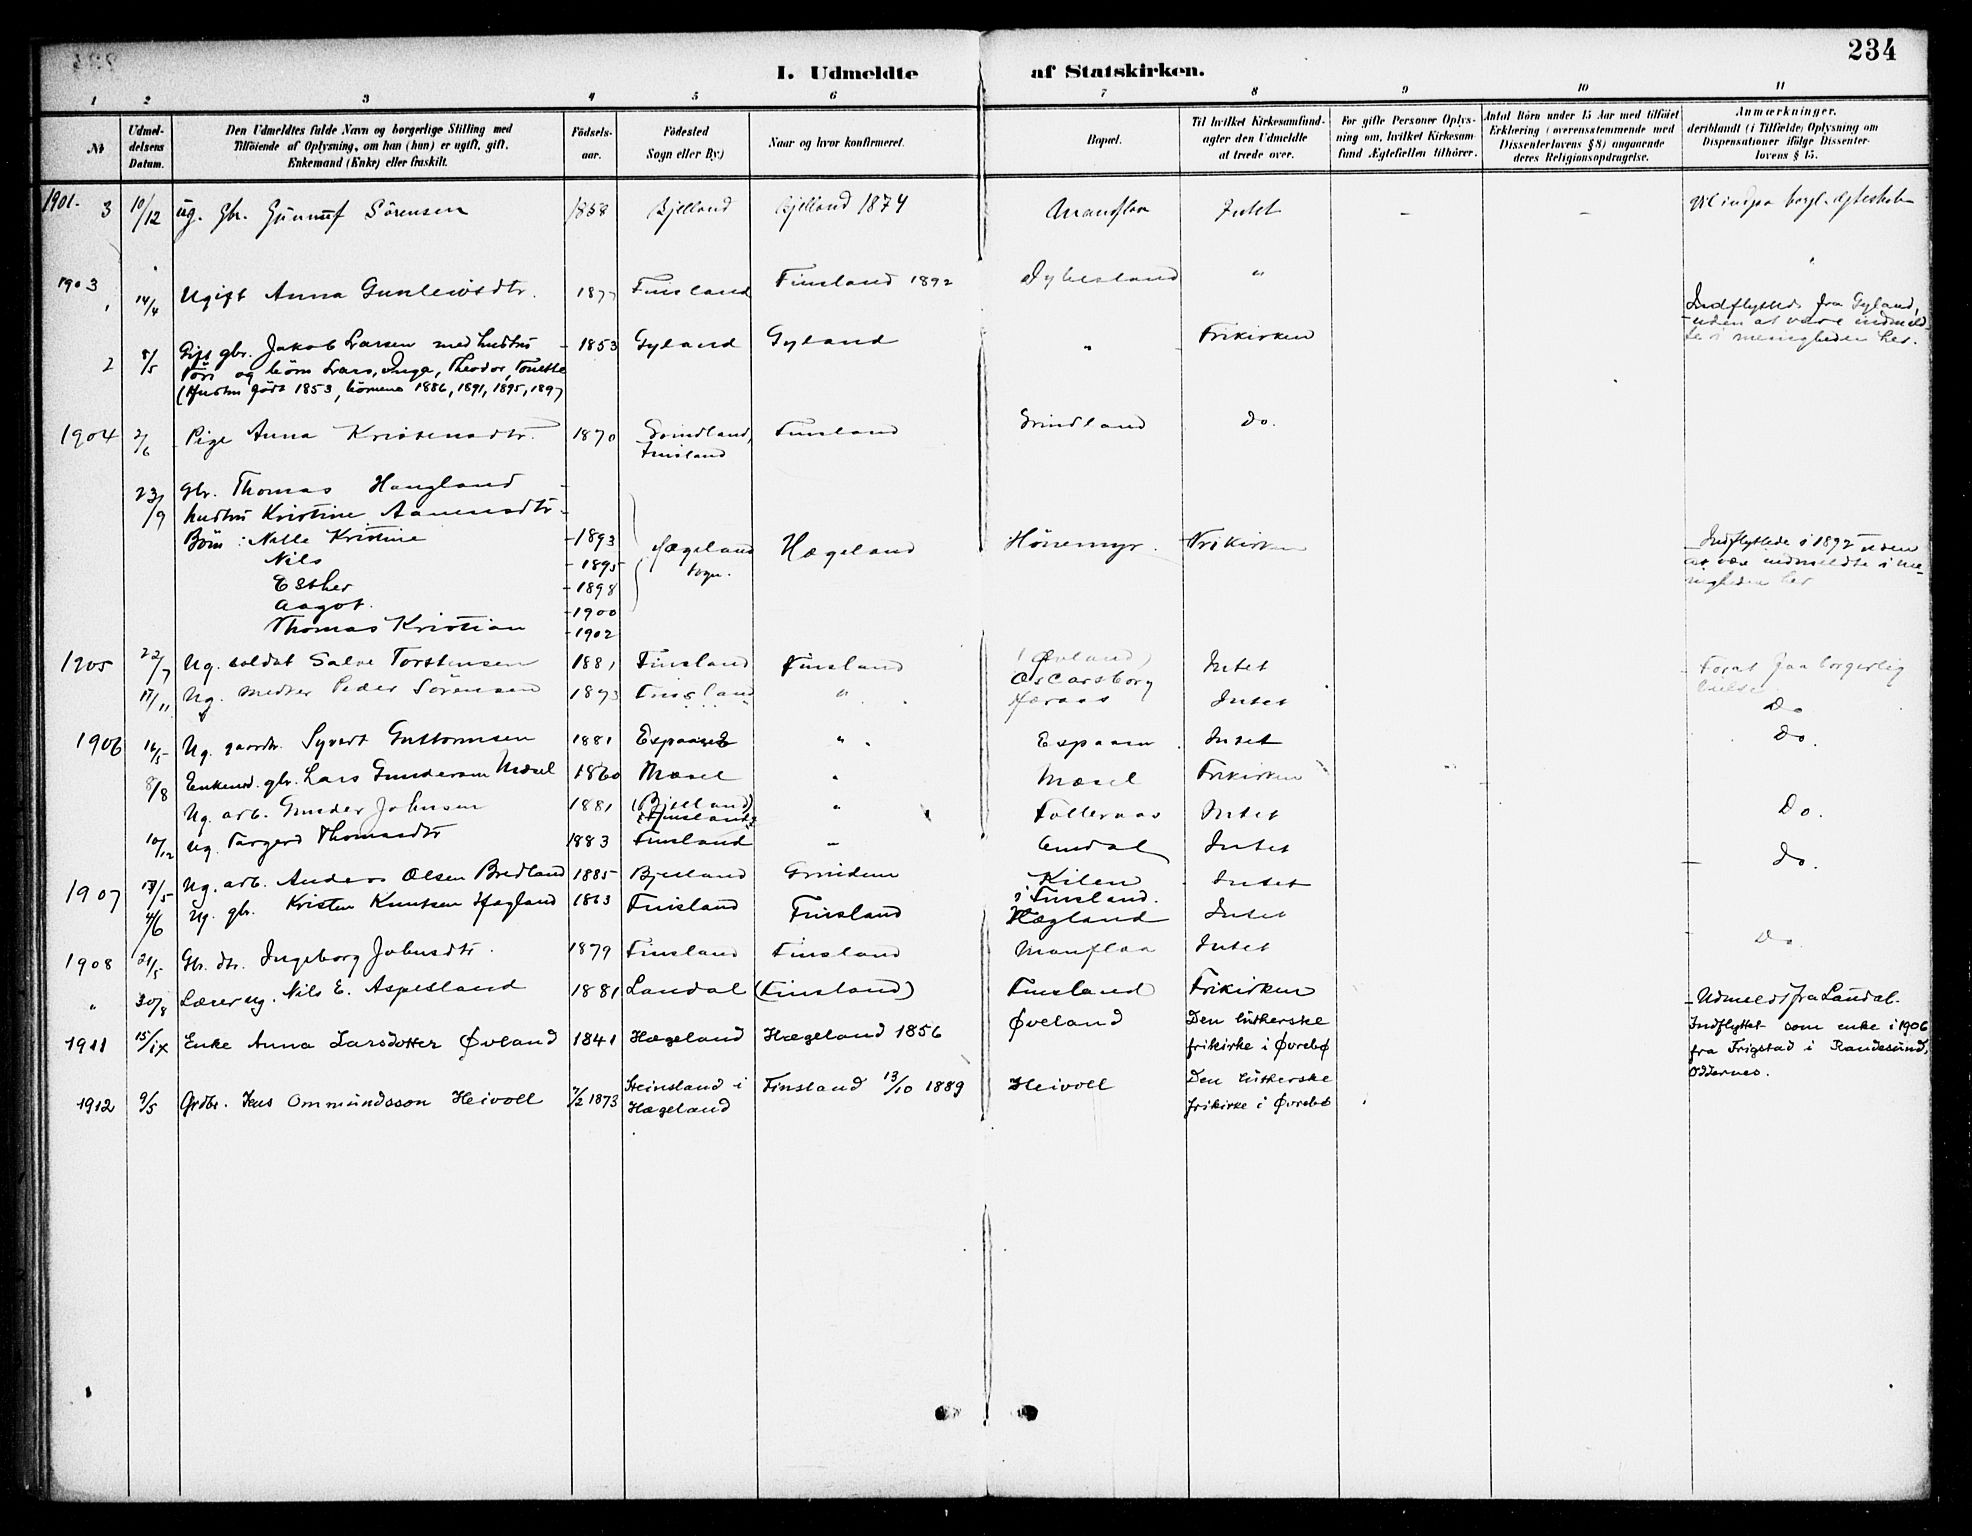 234
I. Udmeldte af Statskirken.
1 2 3 4 5 6 7 8 9 10 11
№ | Udmeldelsens Datum. | Den Udmeldtes fulde Navn og borgerlige Stilling med Tilföiende af Oplysning, om han (hun) er ugift, gift, Enkemand (Enke) eller fraskilt. | Födsels-aar. | Födested Sogn eller By) | Naar og hvor konfirmeret. | Bopæl. | Til hvilket Kirkesamfund agter den Udmeldte at træde over. | For gifte Personer Oplysning om, hvilket Kirkesamfund Ægtefællen tilhörer. | Antal Börn under 15 Aar med tilföiet Erklæring (overensstemmende med Dissenterlovens § 8) angaaende deres Religionsopdragelse. | Anmærkninger, deriblandt (i Tilfælde) Oplysning om Dispensationer ifölge Dissenterlovens § 15.
1901. 3 10/12 ug. Gbr. Gunnuf Sörensen 1858 Bjelland Bjelland 1874 Manflaa Intet - - Vil indgaa borgl. Ægteskab
1903 1 14/4 Ugift Anna Gunleivsdtr. 1877 Finsland Finsland 1892 Dybesland " "
2 8/5 Gift gbr. Jakob Larsen med hustru - 1853 Gyland Gyland " Frikirken Indflyttede fra Gyland,
uden at være indmeld-
te i menigheden her.
Töri og börn Lars, Inga, Theodor, Tonette
(Hustru födt 1853, börnene 1886, 1891, 1895, 1897
1904 2/6 Pige Anna Kristensdtr. 1870 Grindland, Finsland Grindland Do.
Finsland
23/9 Gbr. Thomas Haugland -
hustru Kristine Aanensdtr -
Börn: Nille Kristine - 1893 Hægeland Hægeland Hönemyr. Frikirken Indflyttede i 1892 uden
Nils - 1895 sogn. at være indmeldte i me-
Esther - 1898 nigheden her
Aagot. - 1900
Thomas Kristian - 1902
1905 22/7 Ug. soldat Salve Torstensen 1881 Finsland Finsland (Øvland) Intet
Oscarsborg
17/11 Ug. Peder Sörensen 1873 Finsland " Intet Do
1906 16/5 Ug. gaardbr. Syvert Guttormsen 1881 Espaasen " Espaasen Intet Do.
8/8 Enkemd. gbr. Lars Gundersen Mæsel 1860 Mæsel " Mæsel Frikirken
Ug. arb. Gunder Johnsen 1881 (Bjelland) " Folleraas Intet Do.
(Finsland)
10/12 Ug. Torgerd Thomasdtr 1883 Finsland " Amdal Intet Do.
1907 13/5 Ug. arb. Anders Olsen Bredland 1885 Bjelland Grindum Kilen Intet
i Finsland.
4/6 Ug. gbr. Kristen Knutsen Hægland 1863 Finsland Finsland Hægland Intet
1908 21/5 Gbr. dtr. Ingeborg Johnsdtr. 1879 Finsland Finsland Manflaa Intet Do.
" 30/8 Lærer ug. Nils E. Aspesland 1881 Laudal (Finsland) Finsland Frikirken Udmeldt fra Laudal.
1911 15/IX Enke Anna Larsdotter Øvland 1841 Hægeland Hægeland 1856 Øveland Den lutherske
frikirke i Øvrebø
Indflyttet som enke i 1906
fra Frigstad i Randesund,
Oddernes.
1912 9/5 Grdbr. Jens Ommundsson Heivoll 7/2 1873 Heinsland i
Hægeland
Finsland 13/10 1889 Heivoll Den lutherske
frikirke i Øvrebø